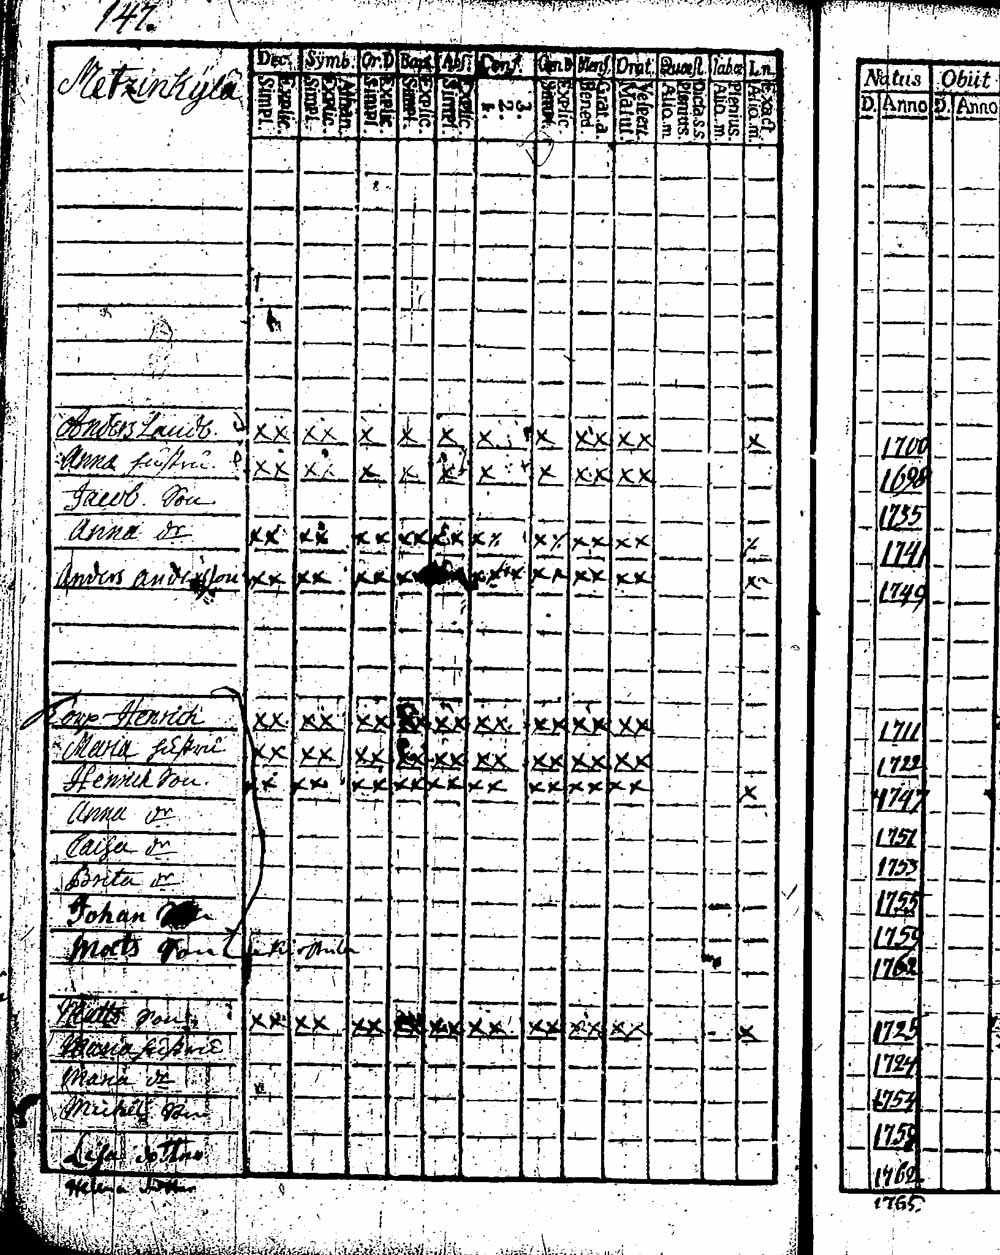 147.
Metzinkÿlä
Dec. Sÿmb. Or.D Bapt. Abs. Conf. Cœn.D Mens. Orat. Quæst. Tabœ Ln.
Simpl. Explic. Simpl. Explic. Athan. Simpl. Explic. Simpl. Explic. Simpl. Explic. 1. 2. 3. Simpl. Explic Bened. Grat.a. Matut Vespert. Alio.m. Plenios. Dicta.s.s Alio.m. Plenius. Alio.m. Exact
Natus Obiit
D. Anno D. Anno
Anders xx xx x x x x x xx xx x 1700
Anna hustru xx xx x x x x x xx xx 1698
Jacob Son 1735
Anna dr xx xx xx xx xx xx xx xx xx x 1741
Anders Andersson xx xx xx xx xx xx xx x 1749
Henrich xx xx xx xx xx xx xx xx xx 1711
Maria hustru xx xx xx xx xx xx xx xx xx 1722
Henrich Son xx xx xx xx xx xx xx xx xx x 1747
Anna dr 1751
Caisa dr 1753
Brita dr 1755
Johan 1759
Mats Son 1762
Matts xx xx xx xx xx xx xx xx xx x 1725
Maria hustru 1724
Maria dr 1754
Michel Son 1759
Lisa dotter 1762
Helena dotter 1765.